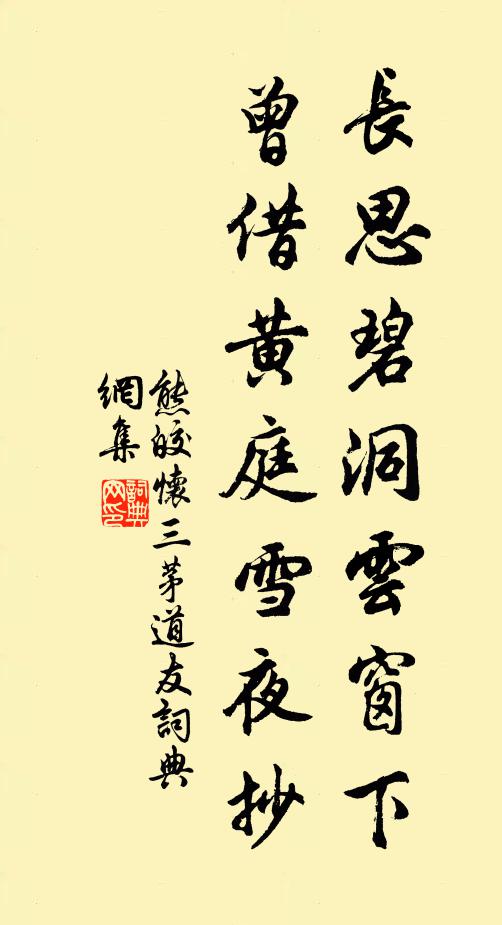 長思碧洞雲窗下
曾借黃庭雪夜抄
熊皎懷三茅道友詞典
網集
詞典
网印